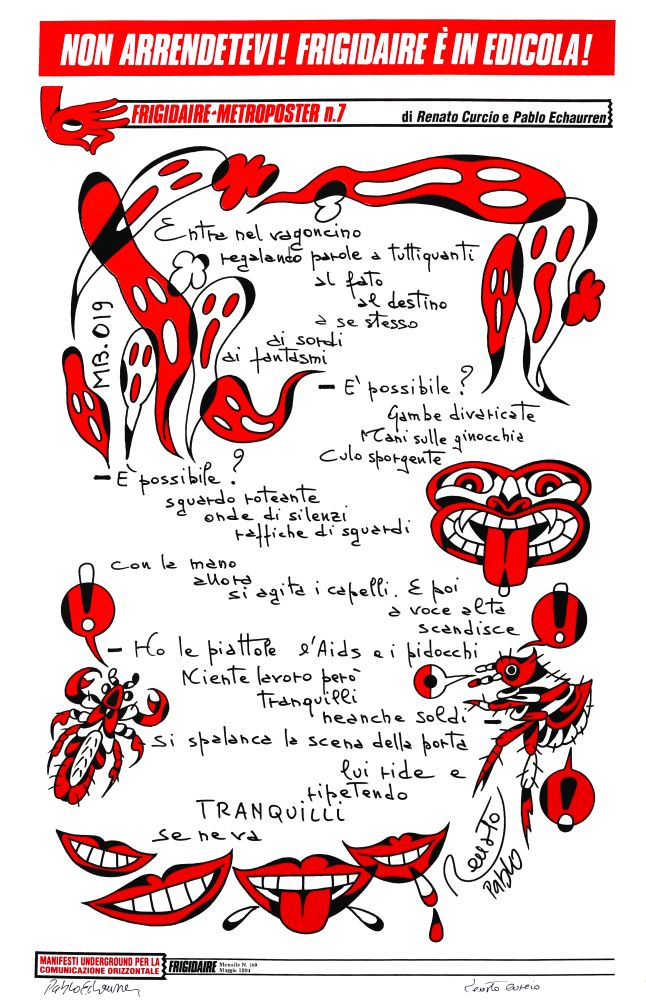 NON ARRENDETEVI! FRIGIDAIRE È IN EDICOLA!
FRIGIDAIRE-METROPOSTER n.7
di Renato Curcio e Pablo Echaurren
Entra nel vagoncino
regalando parole a tuttiquanti
al fato
al destino
a se stesso
ai sordi
ai fantasmi
MB. 019
— E' possibile?
Gambe divaricate
Mani sulle ginocchia
Culo sporgente
— È possibile?
sguardo roteante
onde di silenzi
raffiche di sguardi
con la mano
allora
si agita i capelli. E poi
a voce alta
scandisce
— Ho le piattole l'Aids e i pidocchi
Niente lavoro però
tranquilli
neanche soldi —
si spalanca la scena della porta
lui ride e
ripetendo
TRANQUILLI
se ne va
Renato
Pablo
MANIFESTI UNDERGROUND PER LA
COMUNICAZIONE ORIZZONTALE
FRIGIDAIRE
Mensile N. 160
Maggio 1994
Pablo Echaurren
Renato Curcio